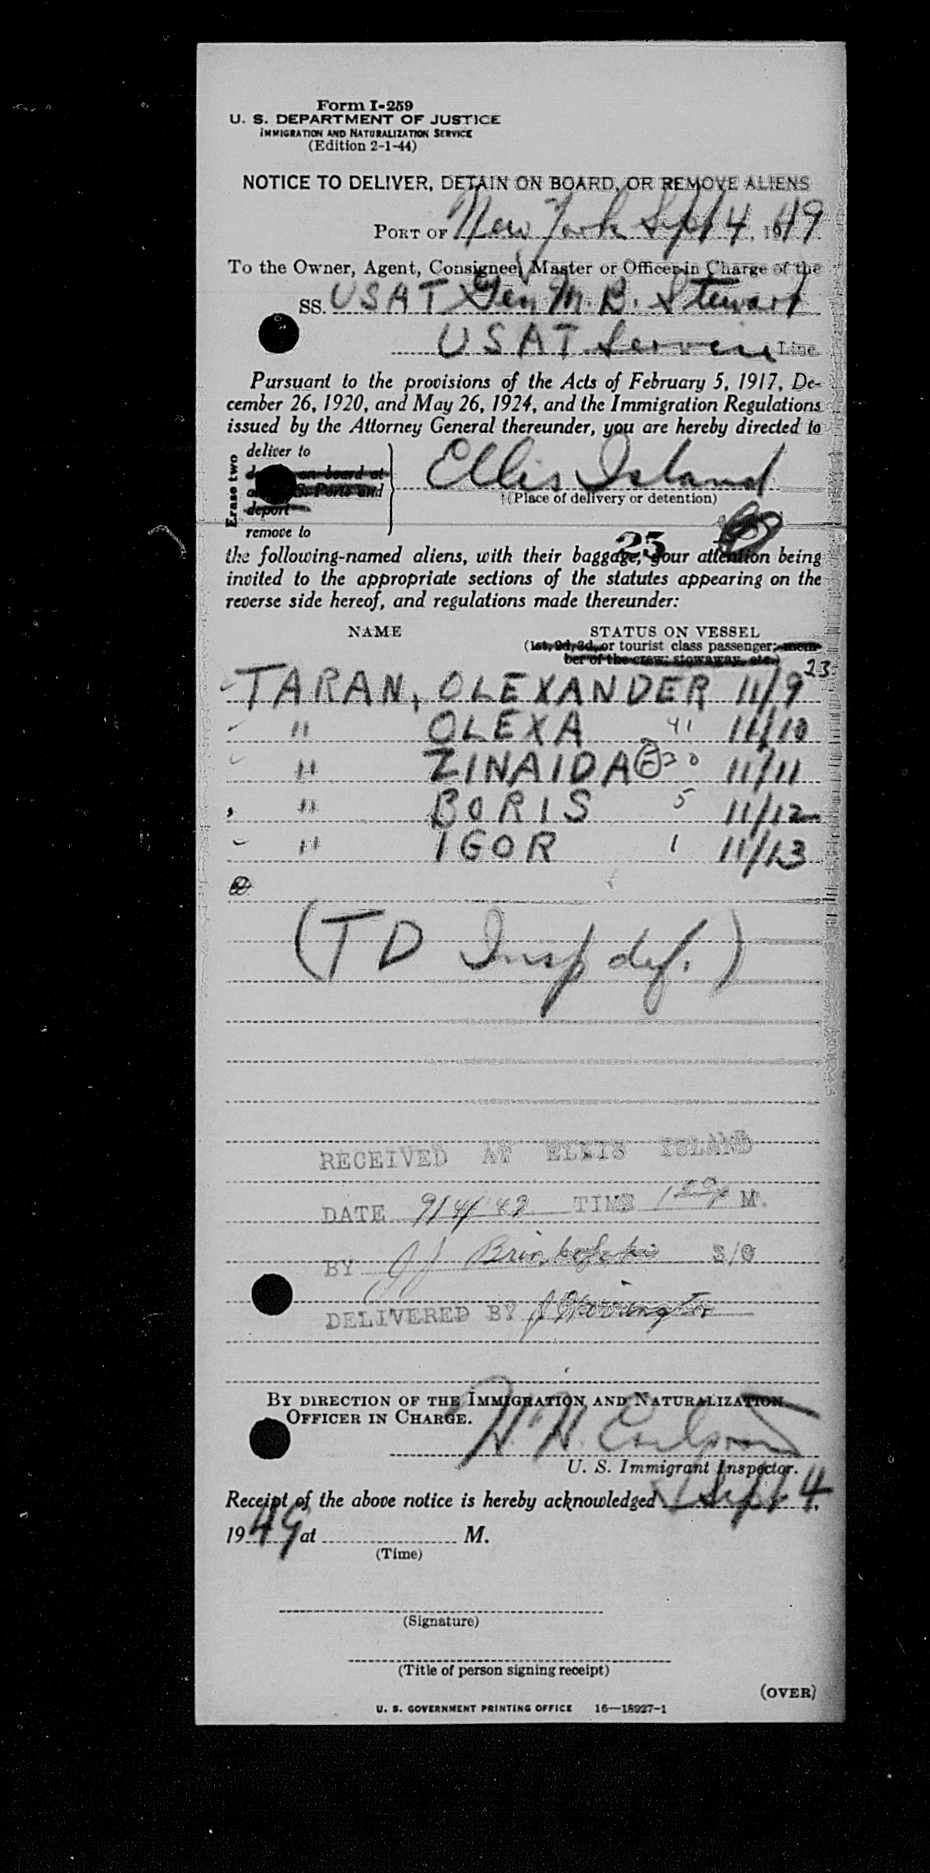 Form I-259
U. S. DEPARTMENT OF JUSTICE
IMMIGRATION AND NATURALIZATION SERVICE
(Edition 2-1-44)
NOTICE TO DELIVER, DETAIN ON BOARD, OR REMOVE ALIENS
PORT OF New York Sept 4, 1949
To the Owner, Agent, Consignee, Master or Officer in Charge of the
SS. USAT Gen M. B. Stewart
USAT Service Line
Pursuant to the provisions of the Acts of February 5, 1917, De-
cember 26, 1920, and May 26, 1924, and the Immigration Regulations
issued by the Attorney General thereunder, you are hereby directed to
Erase two
deliver to
on board at
Ports and
deport
remove to
Ellis Island
(Place of delivery or detention)
25
the following-named aliens, with their baggage, your attention being
invited to the appropriate sections of the statutes appearing on the
reverse side hereof, and regulations made thereunder:
NAME STATUS ON VESSEL
(1st, 2d, 3d, or tourist class passenger; mem-
ber of the crew; stowaway, etc.)
TARAN, OLEXANDER 11/9 23
" OLEXA 41 11/10
" ZINAIDA F 30 11/11
" BORIS 5 11/12
" IGOR 1 11/13
(TD Insp def.)
RECEIVED AT ELLIS ISLAND
DATE 9/4/49 TIME M.
BY J J S/O
DELIVERED BY
BY DIRECTION OF THE IMMIGRATION AND NATURALIZATION
OFFICER IN CHARGE.
H. H. Carlson
U. S. Immigrant Inspector.
Receipt of the above notice is hereby acknowledged Sept 4,
1949 at M.
(Time)
(Signature)
(Title of person signing receipt)
(OVER)
U. S. GOVERNMENT PRINTING OFFICE 16—18927-1